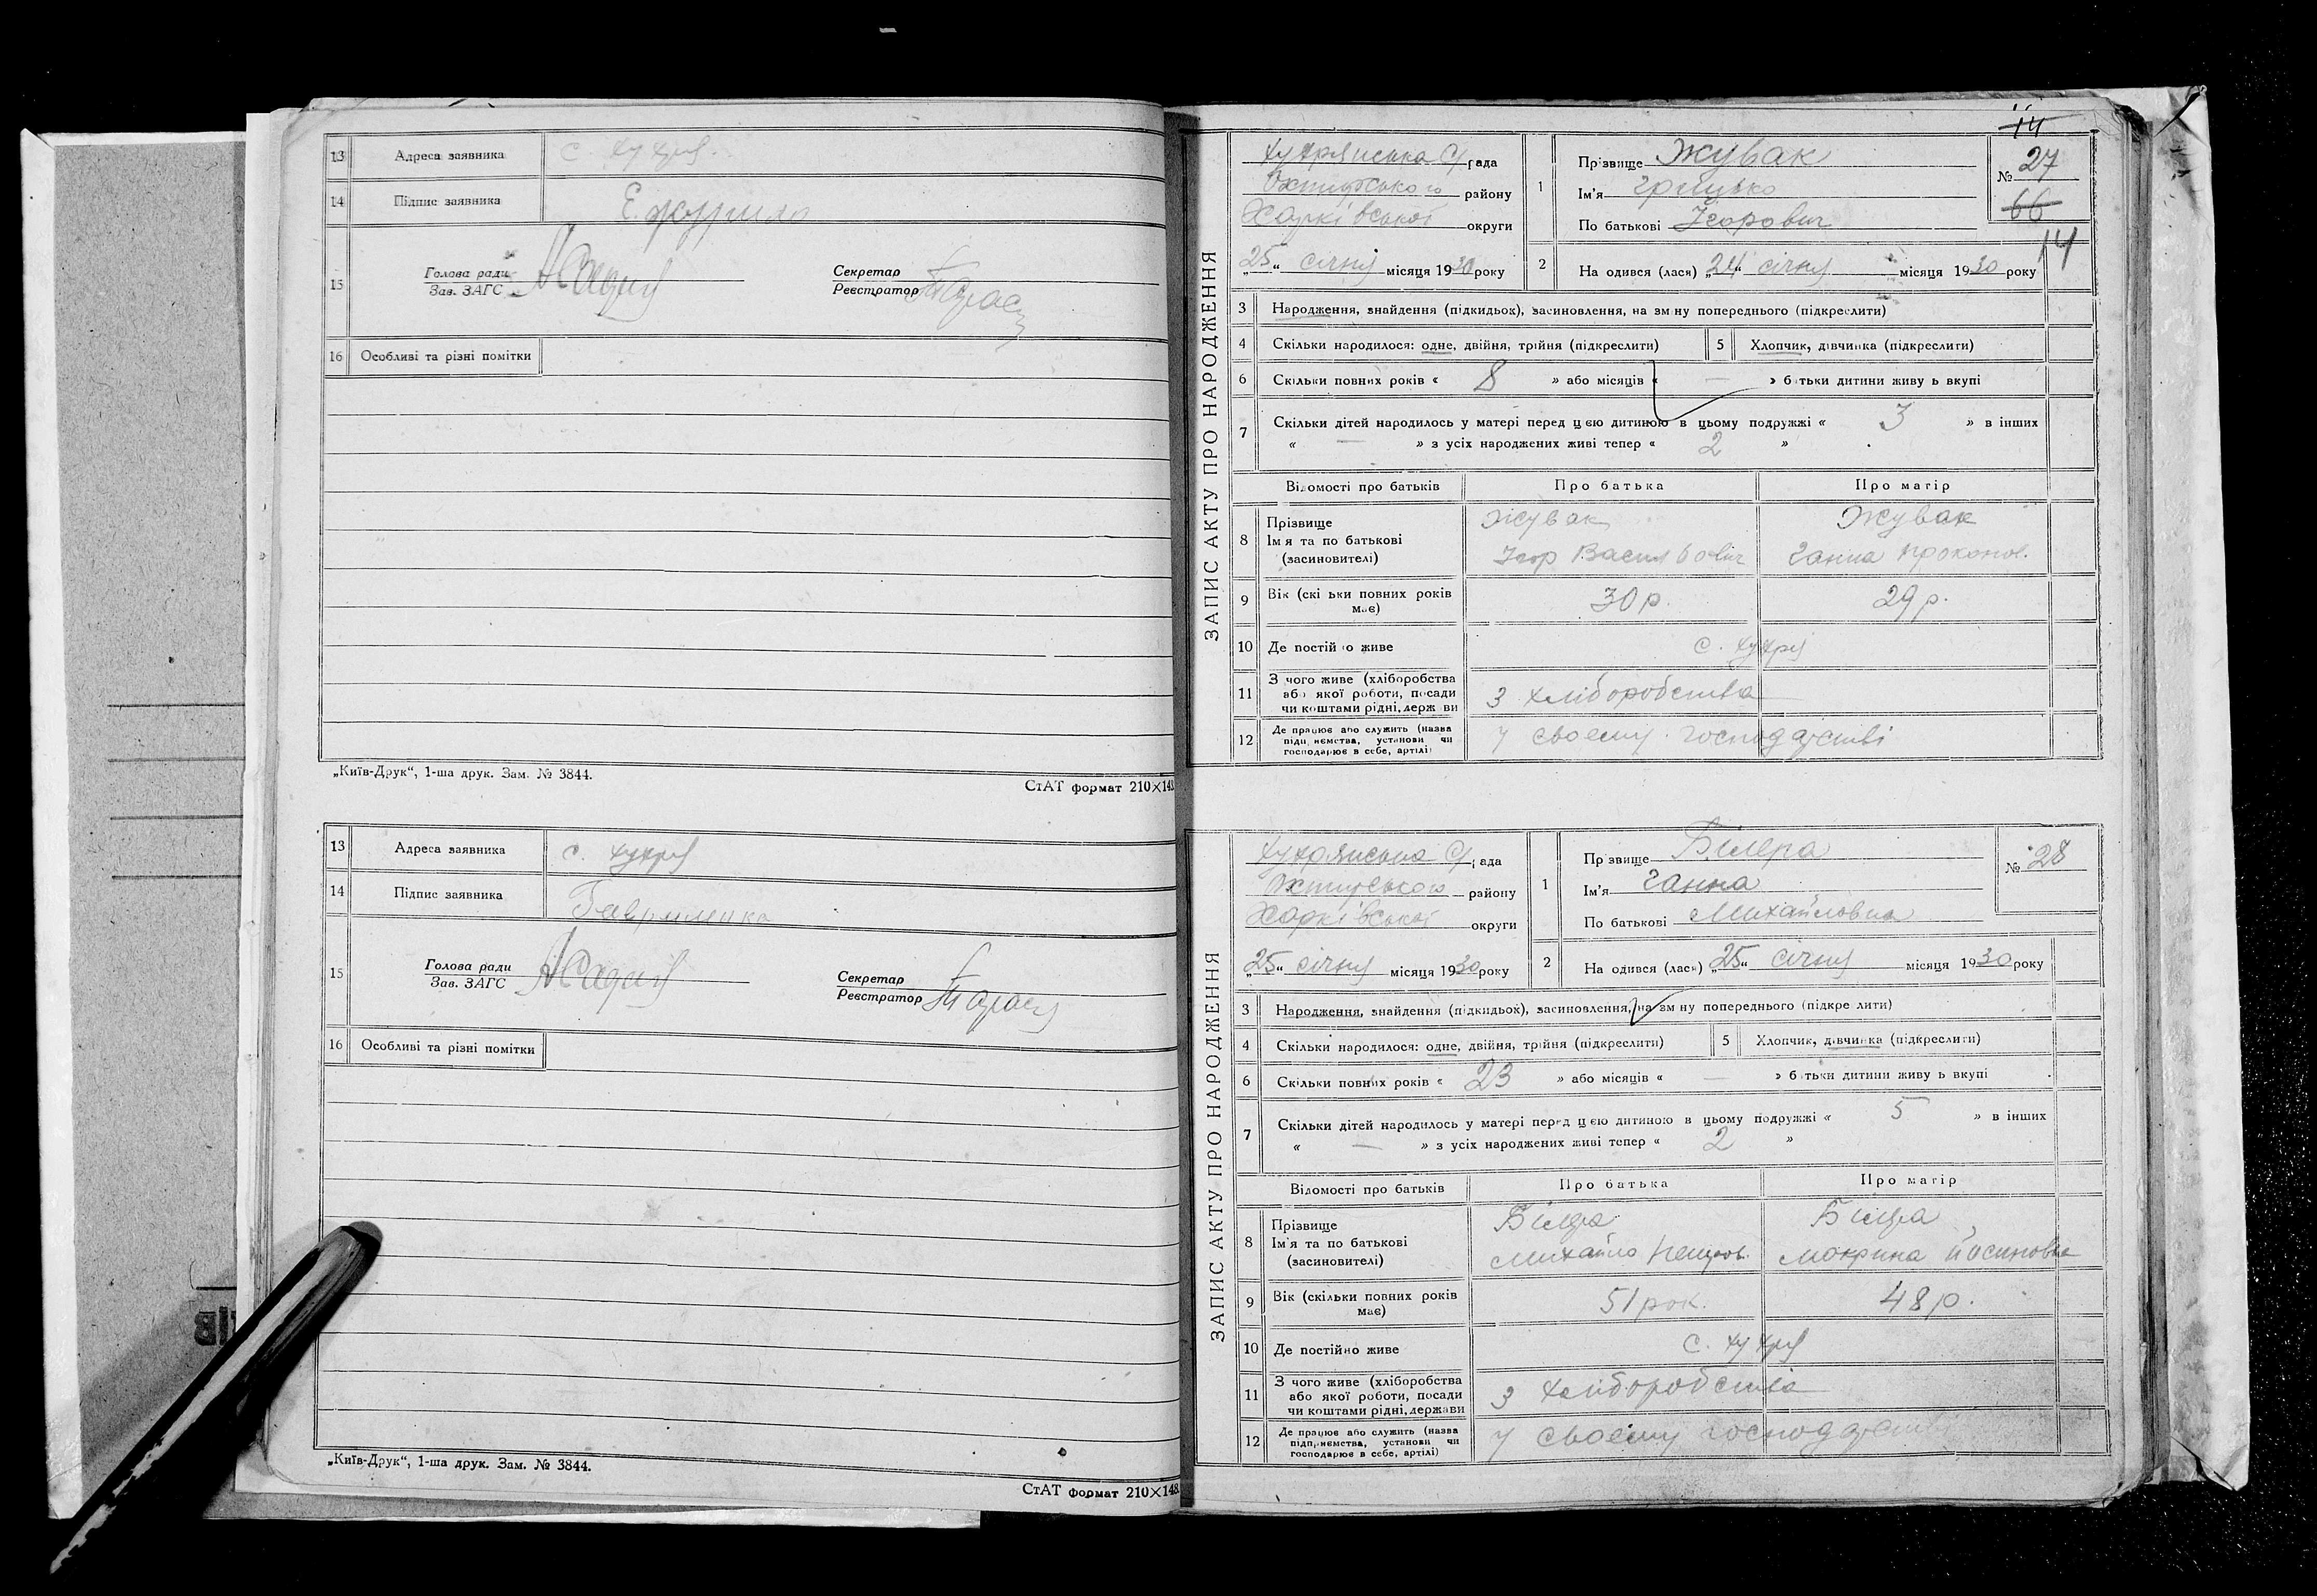 13 Адреса заявника с. Хухря.
14 Підпис заявника Е.
15 Голова ради Секретар
Зав. ЗАГС Реєстратор
16 Особливі та різні помітки
„Київ-Друк“, 1-ша друк. Зам. № 3844.
СтАТ формат 210×148
13 Адреса заявника с. Хухря
14 Підпис заявника Гавриленко
15 Голова ради Секретар
Зав. ЗАГС Реєстратор
16 Особливі та різні помітки
„Київ-Друк“, 1-ша друк. Зам. № 3844.
СтАТ формат 210×148
ЗАПИС АКТУ ПРО НАРОДЖЕННЯ
14
Хухрянська С/рада
Охтирського району
Харківської округи
„25“ січня місяця 1930 року
1 Прізвище Жувак
Ім'я Грицько
По батькові Ігорович
№ 27
66
14
2 На одився (лася) „24“ січня місяця 1930 року
3 Народження, знайдення (підкидьок), засиновлення, на зм ну попереднього (підкреслити)
4 Скільки народилося: одне, двійня, трійня (підкреслити) 5 Хлопчик, дівчинка (підкреслити)
6 Скільки повних років « 8 » або місяців « — » б тьки дитини живу ь вкупі
7 Скільки дітей народилось у матері перед ц єю дитиною в цьому подружжі « 3 » в інших
« — » з усіх народжених живі тепер « 2 »
Відомості про батьків Про батька Про матір
8 Прізвище Жувак Жувак
Ім я та по батькові Ігор Васильович Ганна Прокопов.
(засиновителі)
9 Вік (скі ьки повних років має) 30 р. 29 р.
10 Де постій о живе с. Хухря
11 З чого живе (хліборобства
або якої роботи, посади
чи коштами рідні, держ ви З хліборобства
12 Де працює або служить (назва
підп иємства, установи чи
господарює в себе, артілі) У своєму господарстві
ЗАПИС АКТУ ПРО НАРОДЖЕННЯ
Хухрянська С/рада
Охтирського району
Харківської округи
„25“ січня місяця 1930 року
1 Пр звище Білера
Ім'я Ганна
По батькові Михайловна
№ 28
2 На одився (лася) „25“ січня місяця 1930 року
3 Народження, знайдення (підкидьок), засиновлення, на зм ну попереднього (підкре лити)
4 Скільки народилося: одне, двійня, трійня (підкреслити) 5 Хлопчик, дівчинка (підкреслити)
6 Скільки повних років « 23 » або місяців « — » б тьки дитини живу ь вкупі
7 Скільки дітей народилось у матері перед ц єю дитиною в цьому подружжі « 5 » в інших
« — » з усіх народжених живі тепер « 2 »
Відомості про батьків Про батька Про матір
8 Прізвище Білера Білера
Ім'я та по батькові Михайло Петров. Мокрина Йосиповна
(засиновителі)
9 Вік (скільки повних років має) 51 рок. 48 р.
10 Де постійно живе с. Хухря
11 З чого живе (хліборобства
або якої роботи, посади
чи коштами рідні, держави З хліборобства
12 Де працює або служить (назва
підприємства, установи чи
господарює в себе, артілі) У своєму господарстві